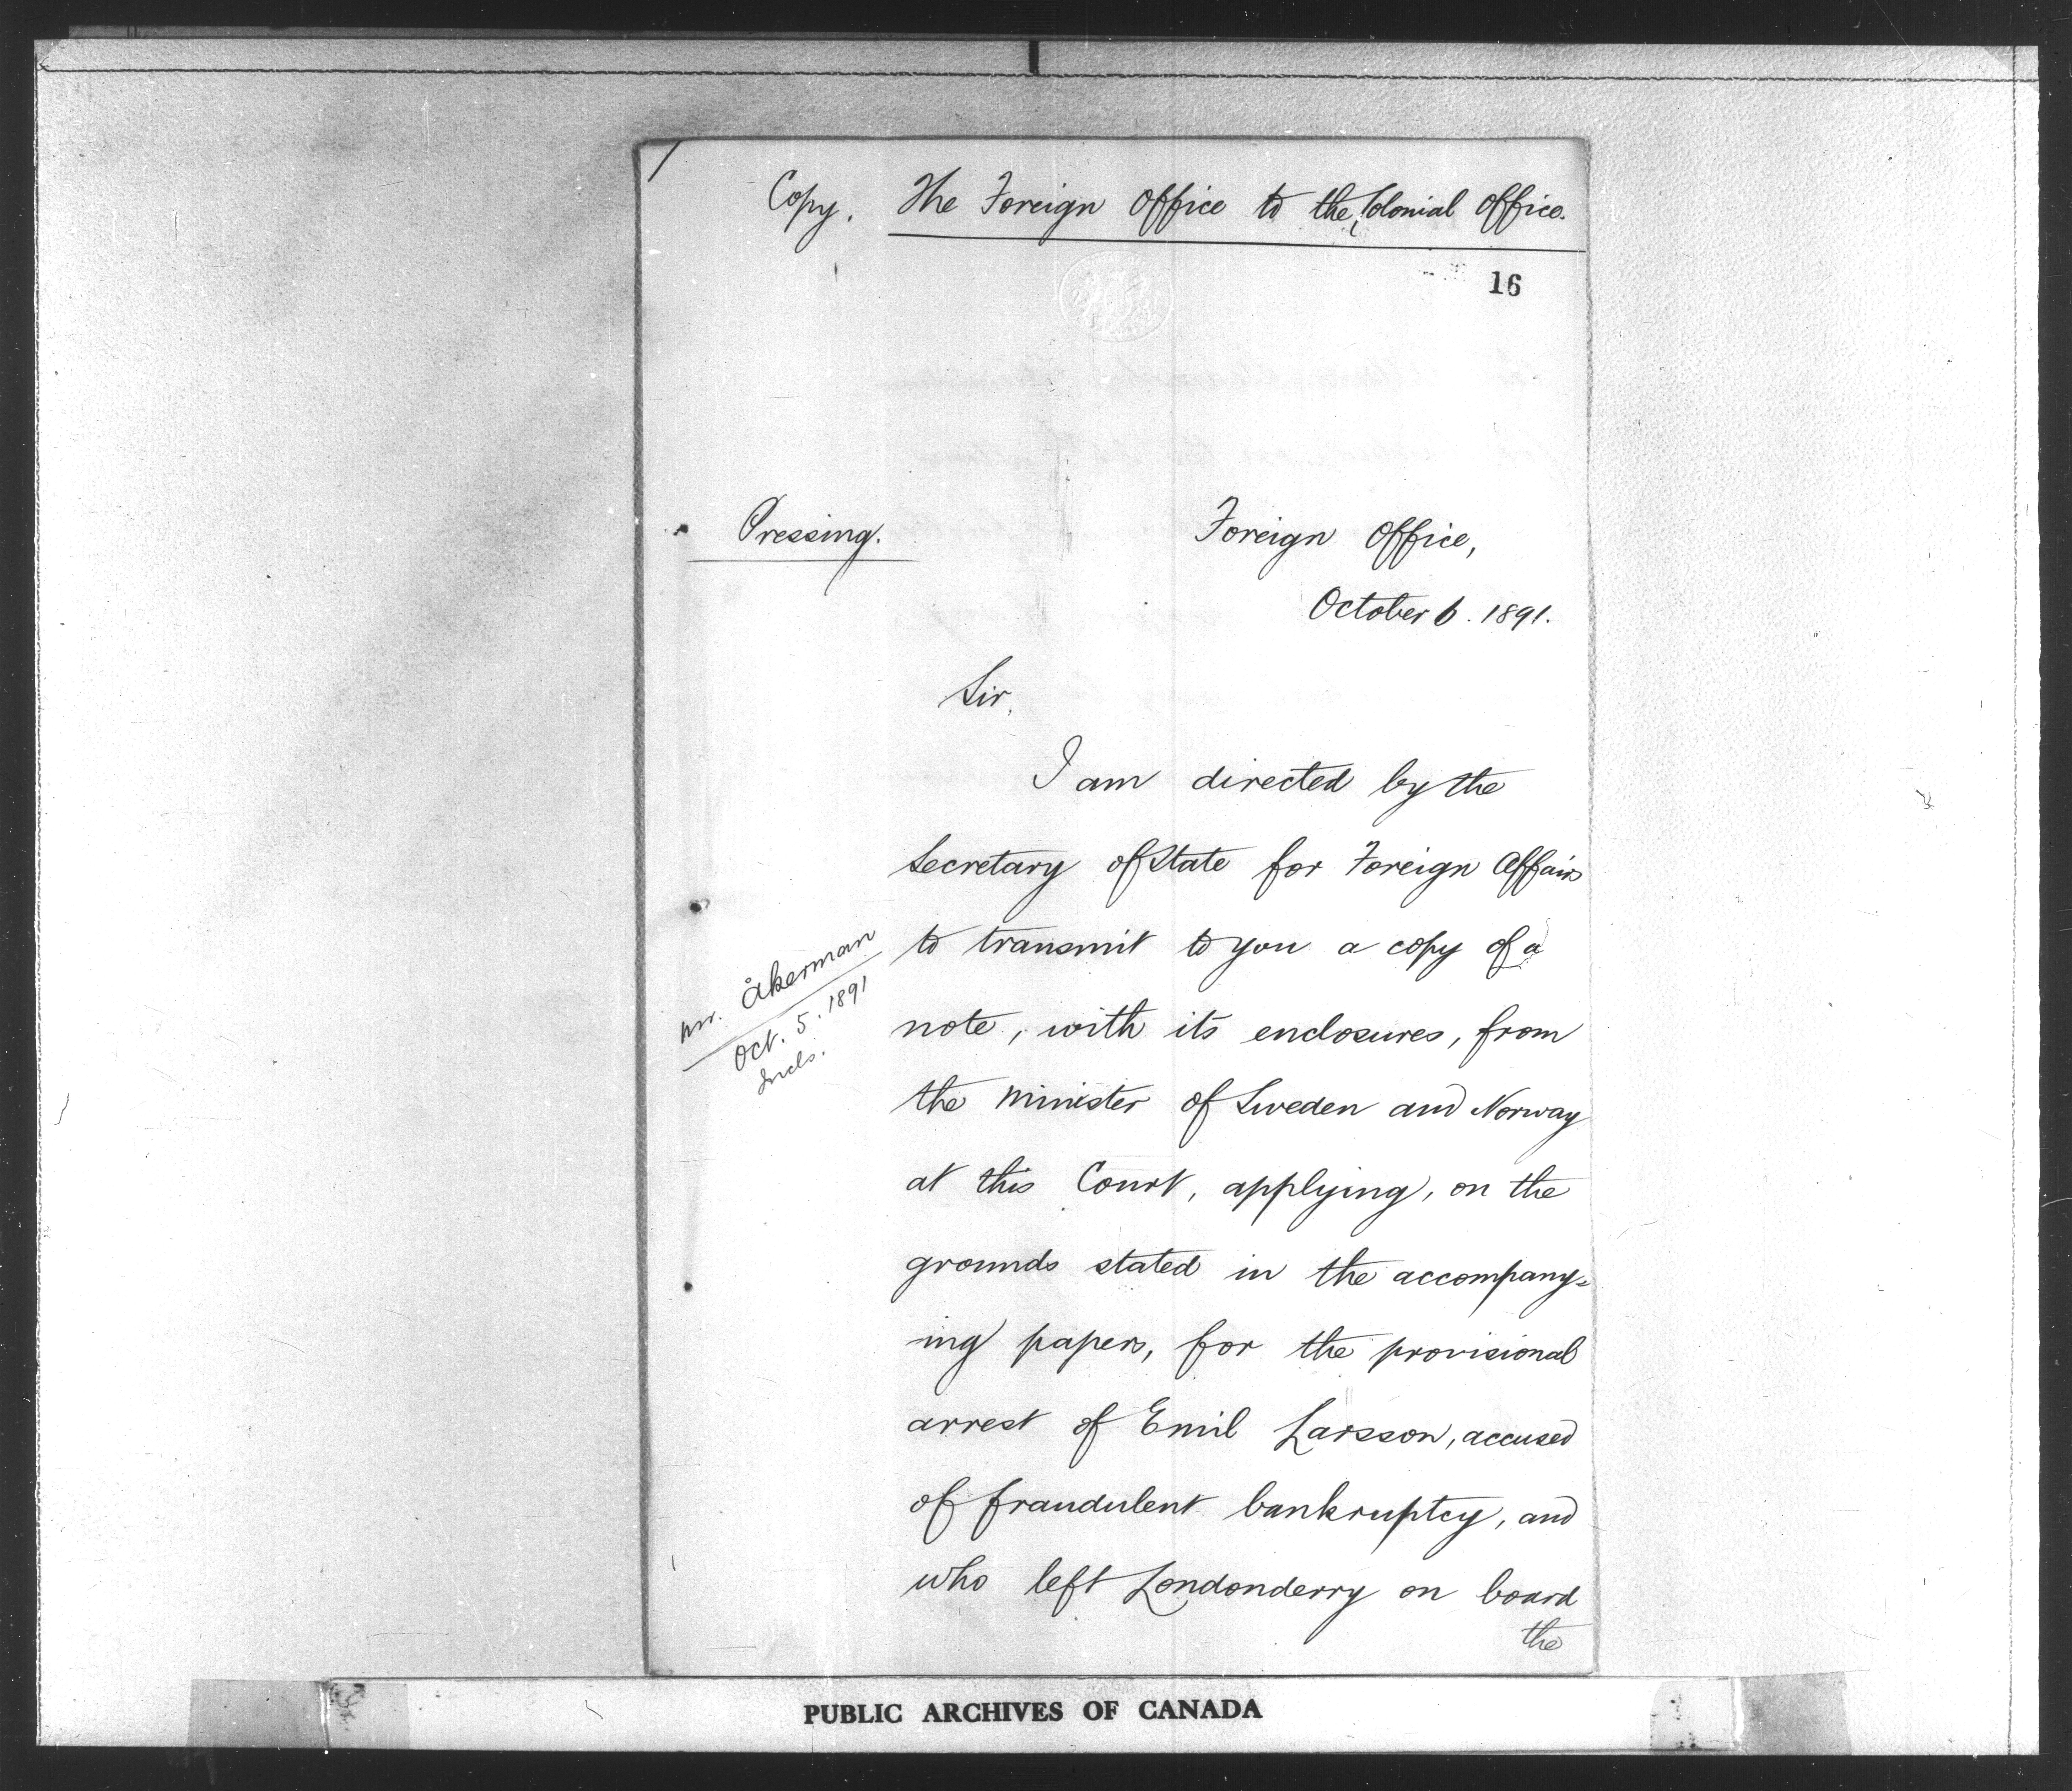 Copy. The Foreign Office to the Colonial Office.
16
Pressing.
Foreign Office,
October 6. 1891.
Sir,
I am directed by the
Secretary of State for Foreign Affairs
to transmit to you a copy of a
note, with its enclosures, from
the Minister of Sweden and Norway
at this Court, applying, on the
grounds stated in the accompany=
ing papers, for the provisional
arrest of Emil Larsson, accused
of fraudulent bankruptcy, and
who left Londonderry on board
the
Mr. Åkerman
Oct. 5. 1891
Incls.
PUBLIC ARCHIVES OF CANADA